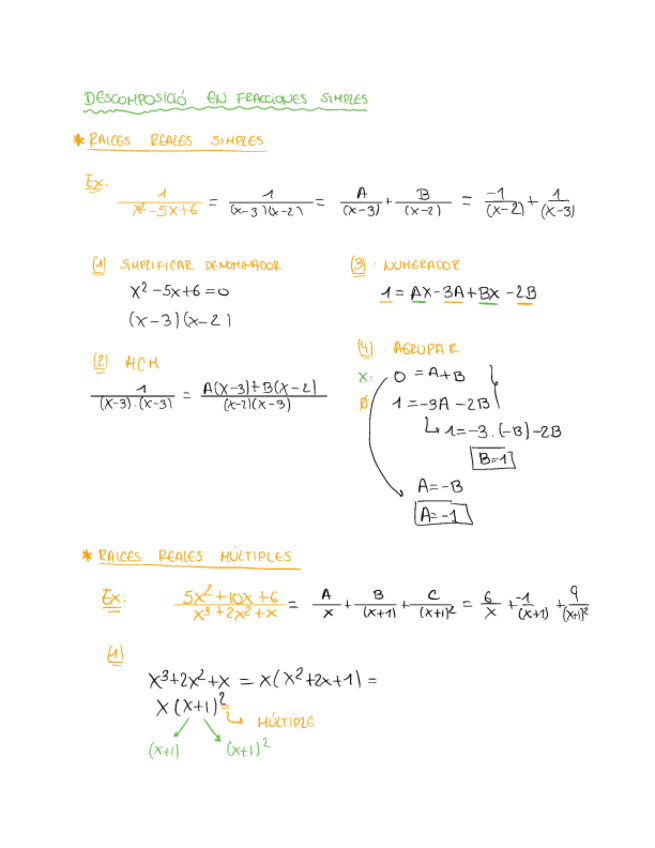 DESCOMPOSICIÓ EN FRACCIONES SIMPLES
* RAICES REALES SIMPLES
Ex. 1/(x²-5x+6) = 1/((x-3)(x-2)) = A/(x-3) + B/(x-2) = -1/(x-2) + 1/(x-3)
(1) SIMPLIFICAR DENOMINADOR
x²-5x+6=0
(x-3)(x-2)
(2) MCM
1/((x-3).(x-3)) = (A(x-3)+B(x-2))/((x-2)(x-3))
(3). NUMERADOR
1 = Ax-3A+Bx-2B
(4) AGRUPAR
x. 0 = A+B
Ø 1 = -3A-2B
1=-3.(-B)-2B
B=1
A=-B
A=-1
* RAICES REALES MÚLTIPLES
Ex: (5x²+10x+6)/(x³+2x²+x) = A/x + B/(x+1) + C/(x+1)² = 6/x + -1/(x+1) + 9/(x+1)²
(1)
x³+2x²+x = x(x²+2x+1) =
x(x+1)²
MÚLTIPLE
(x+1) (x+1)²